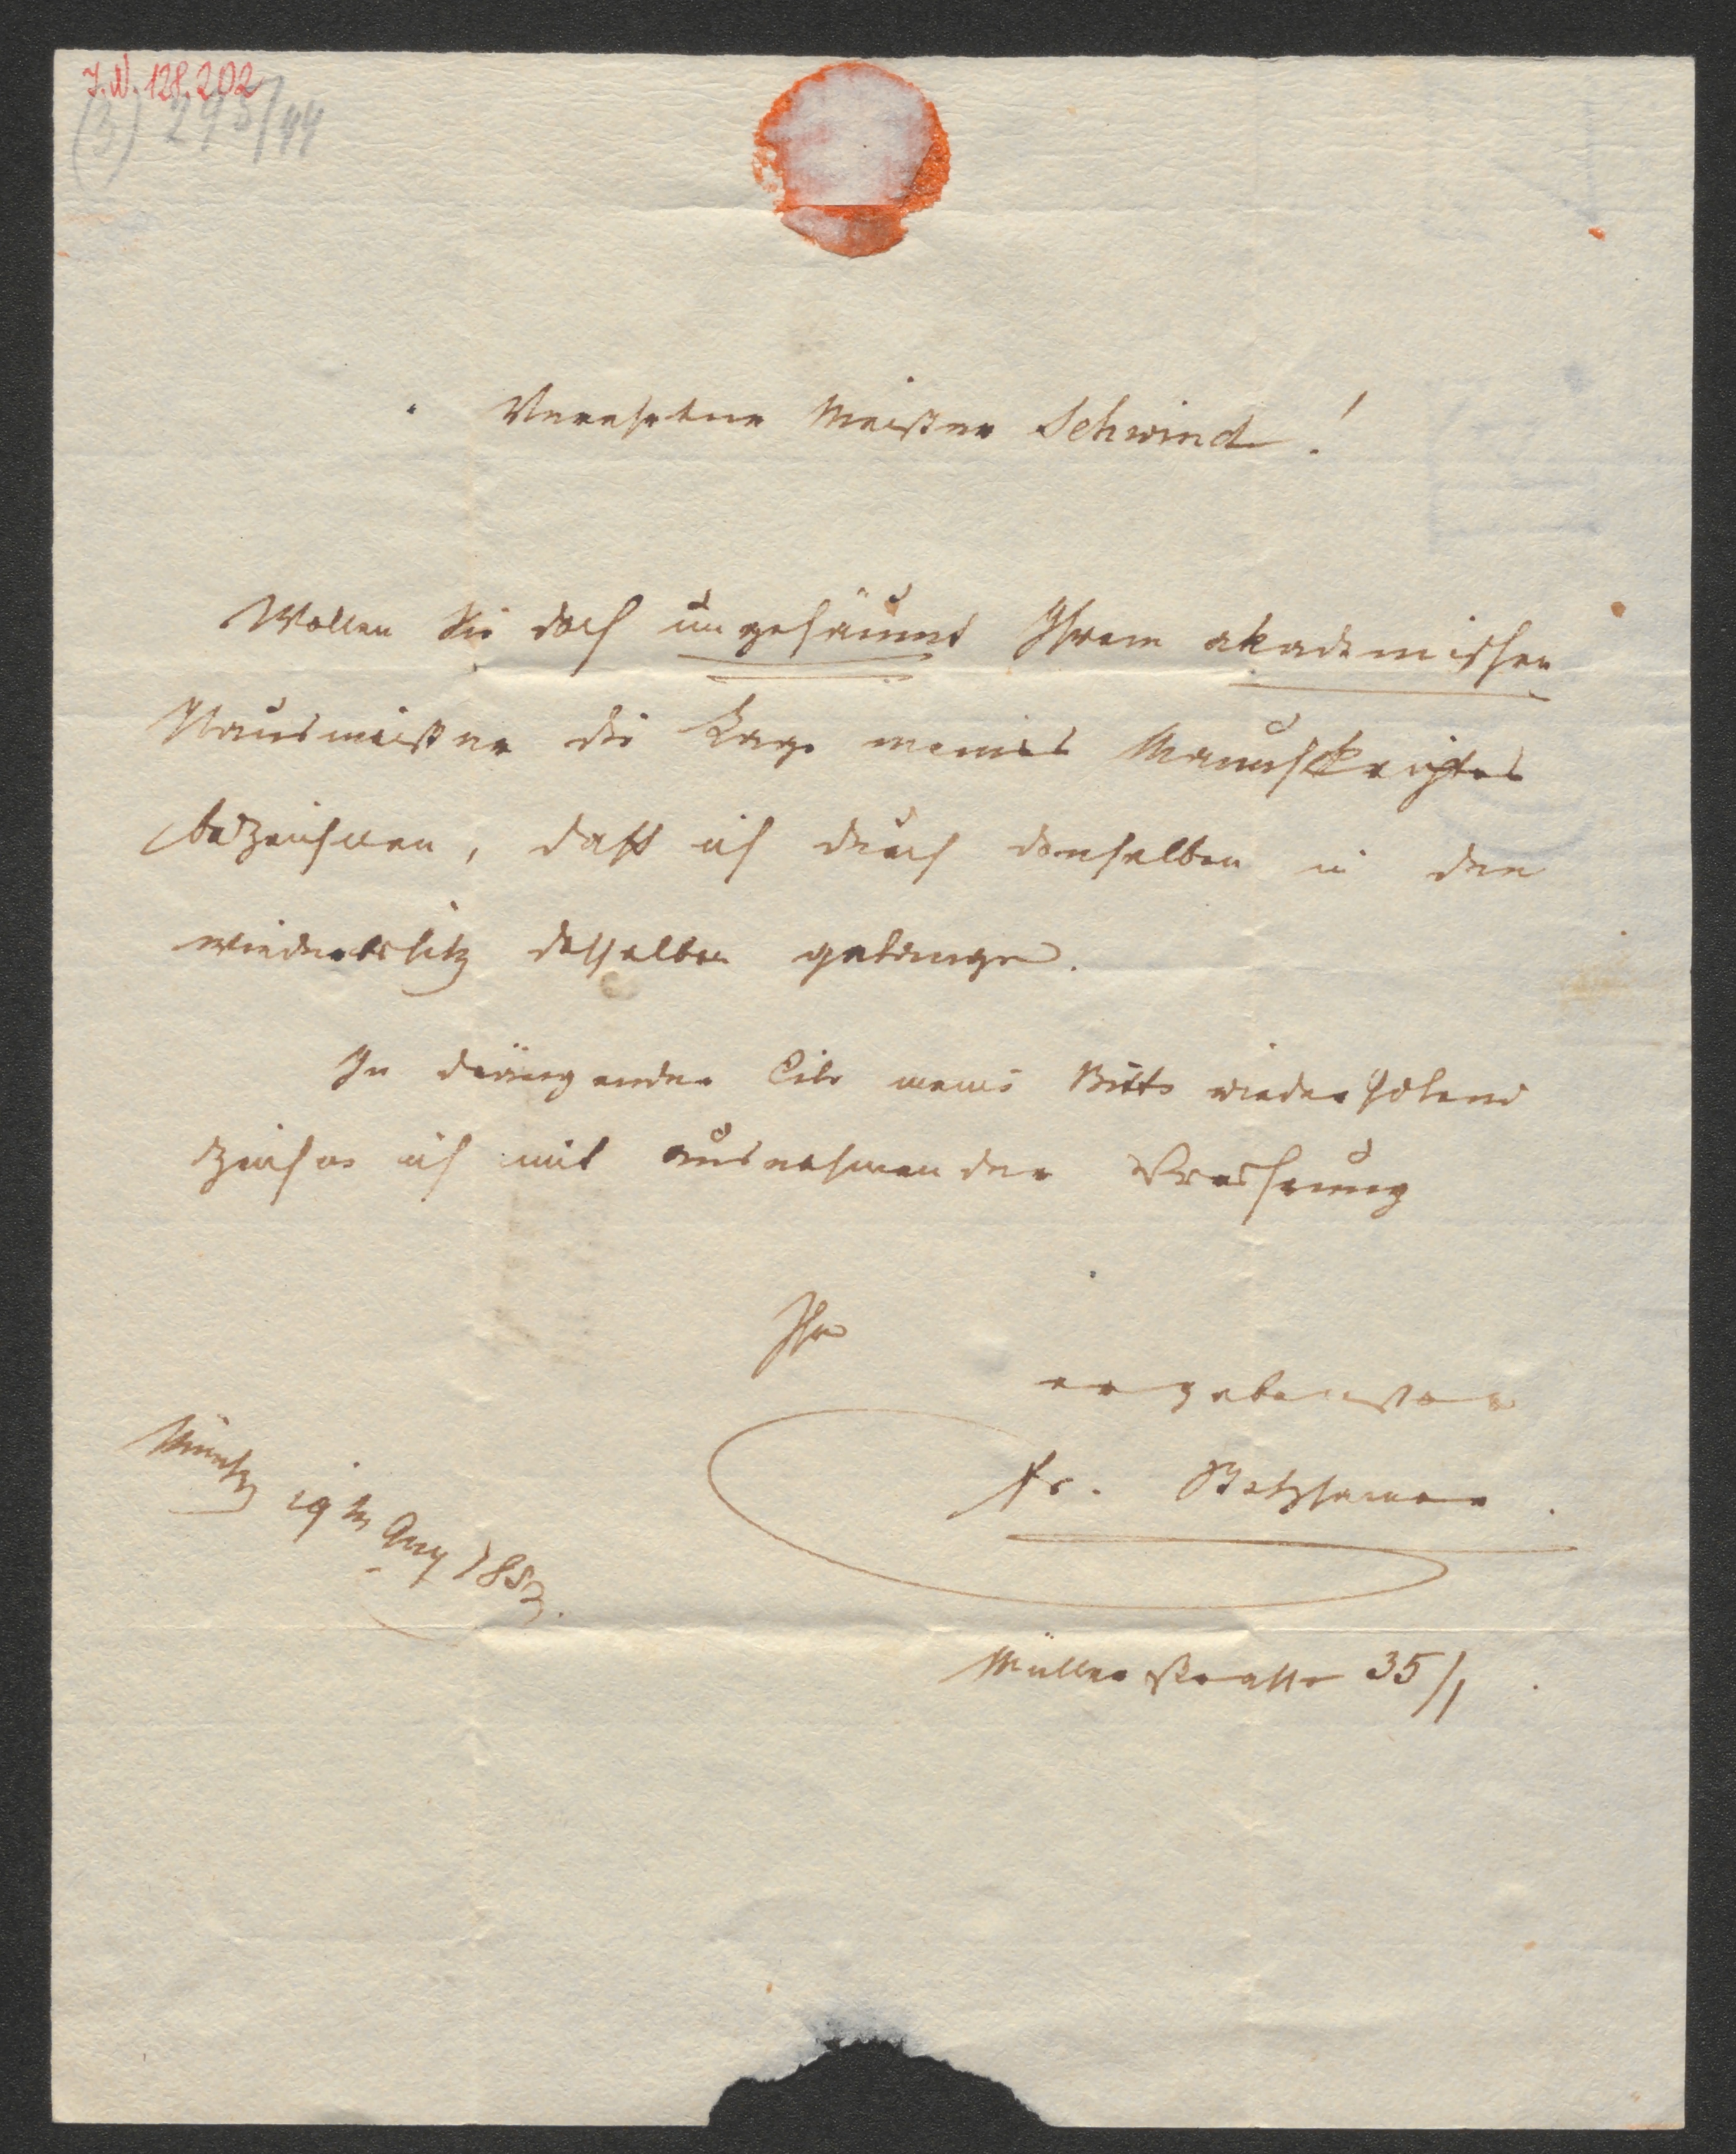 J.N. 128.202
(3) 293/44
Verehrter Meister Schwind!
Wollen Sie doch ungesäumt Ihrem akademischen
Hausmeister die Lage meines Manuskriptes
bezeichnen, daß ich durch denselben in den
Wiederbesitz desselben gelange.
In drängender Eile meine Bitte wiederholend
zeichne ich mit ausnehmender Verehrung
Ihr
ergebenster
Fr. Beckmann
München 19ten Aug 1852.
Müllerstraße 35/1.